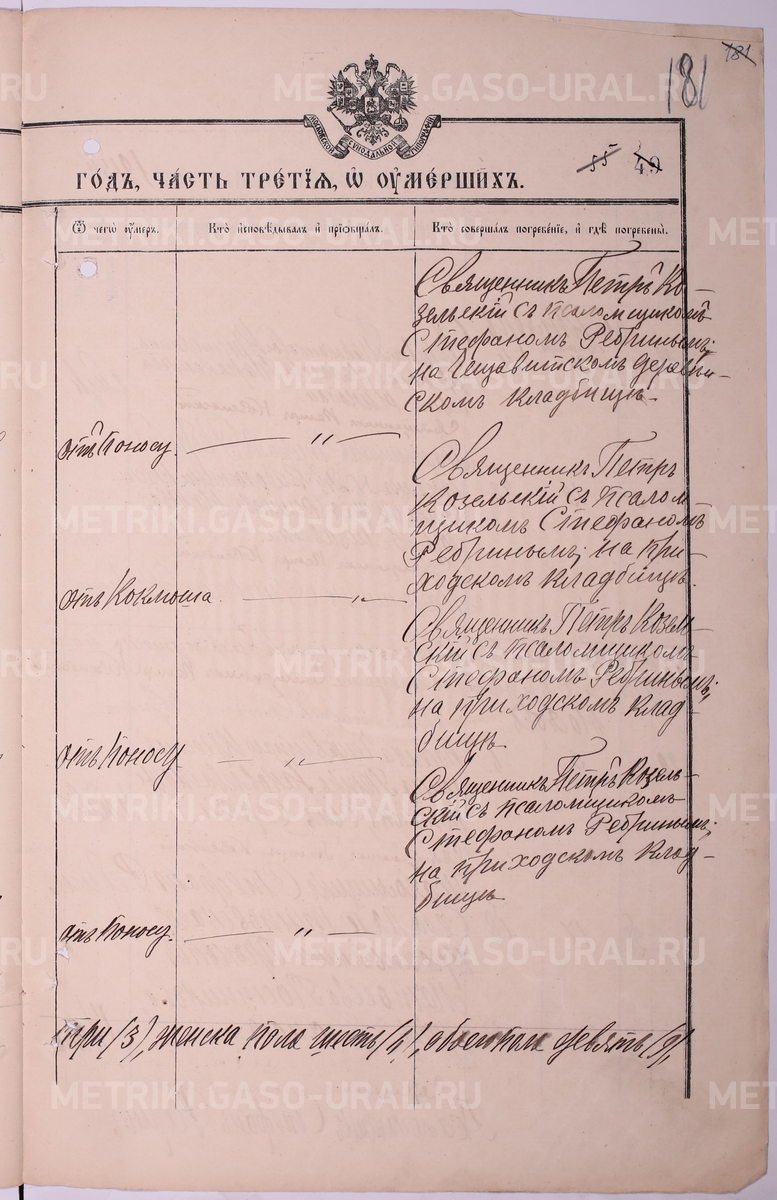 181
181
МОСКОВСКОЙ СѴНОДАЛЬНОЙ ТИПОГРАФІИ
55 49
ГОДЪ, ЧАСТЬ ТРЕТІЯ, Ѡ ОУМЕРШИХЪ.
Ѿ чегѡ оумеръ. Кто исповѣдывалъ и прїобщалъ. Кто совершалъ погребеніе, и гдѣ погребены.
Священникъ Петръ Ко-
зельскій съ псаломщикомъ
Стефаномъ Ребринымъ;
на деревен-
скомъ кладбищѣ.
отъ поносу. — „ —
Священникъ Петръ
Козельскій съ псалом
щикомъ Стефаномъ
Ребринымъ; на при-
ходскомъ кладбищѣ.
отъ Коклюша. — „ —
Священникъ Петръ Козель-
скій съ псаломщикомъ
Стефаномъ Ребринымъ;
на приходскомъ клад-
бищѣ.
отъ поносу — „ —
Священникъ Петръ Козель-
скій съ псаломщикомъ
Стефаномъ Ребринымъ;
на приходскомъ клад-
бищѣ
отъ поносу. — „ —
три (3), женска пола шесть (6), обоего пола девять (9)
METRIKI.GASO-URAL.RU